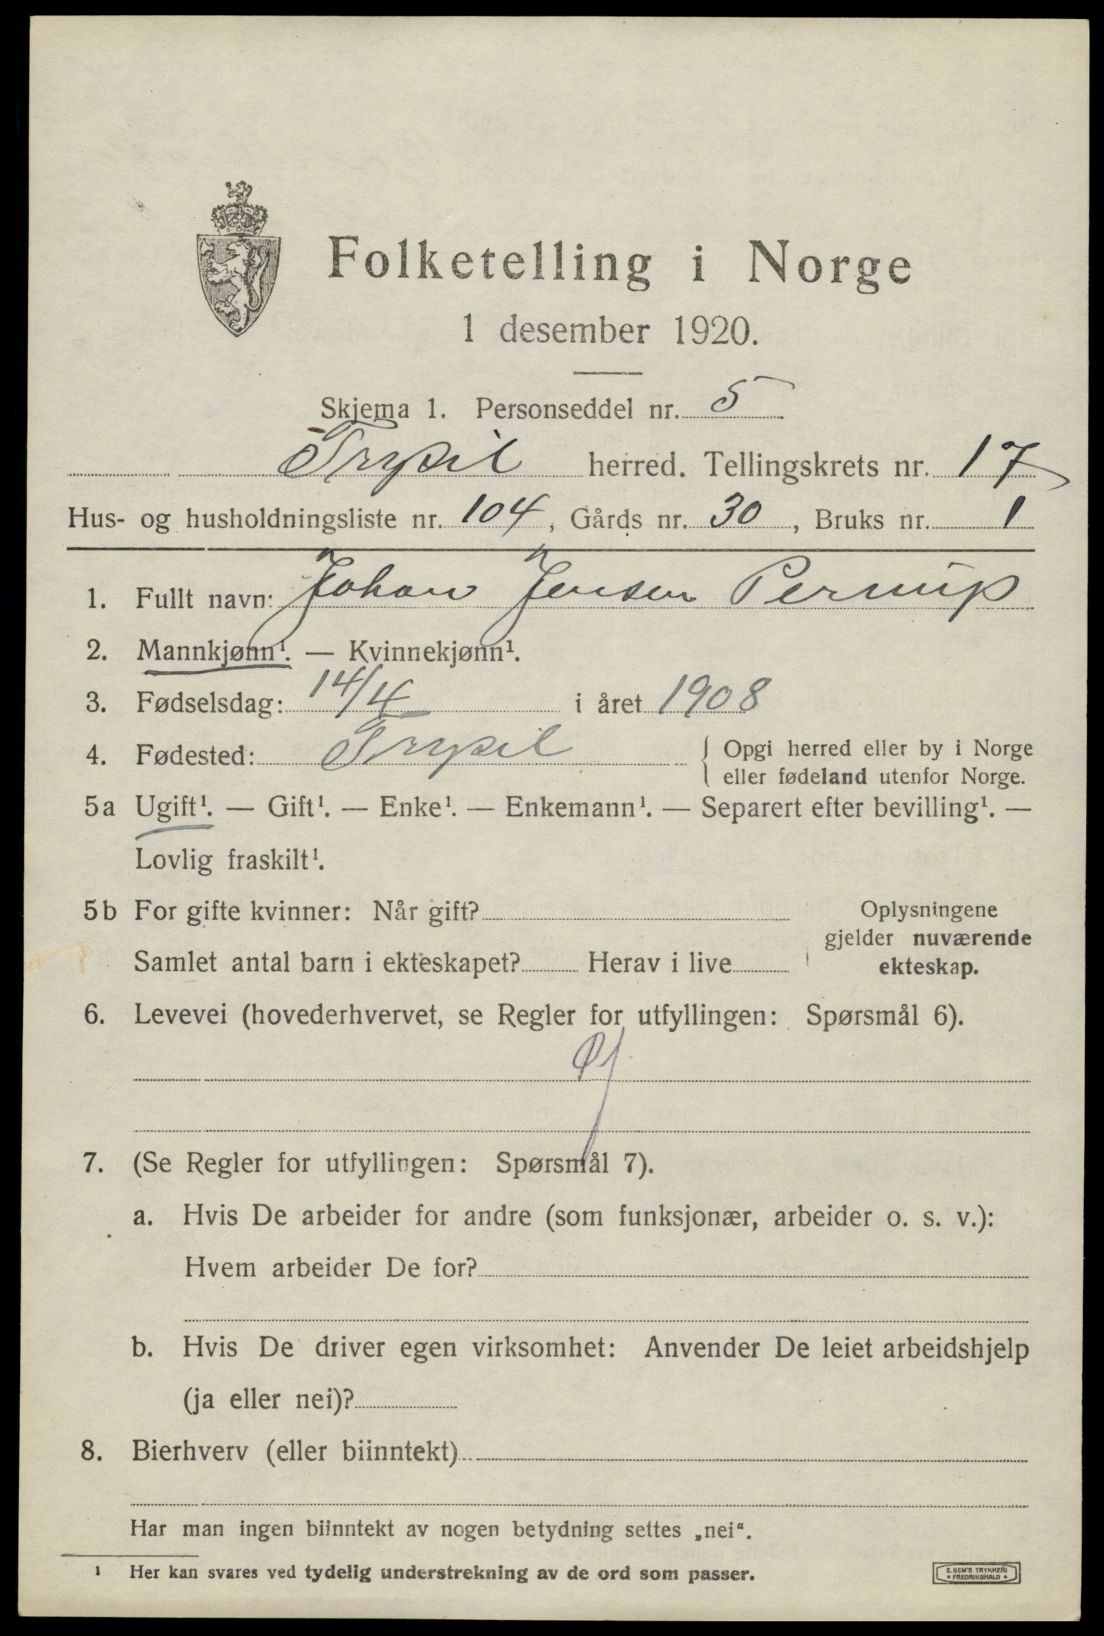 Folketelling i Norge
1 desember 1920.
Skjema 1. Personseddel nr. 5
Trysil herred. Tellingskrets nr. 17
Hus- og husholdningsliste nr. 104, Gårds nr. 30, Bruks nr. 1
1. Fullt navn: Johan Jensen Pernup
2. Mannkjønn¹. — Kvinnekjønn¹.
3. Fødselsdag: 14/4 i året 1908
4. Fødested: Trysil { Opgi herred eller by i Norge
eller fødeland utenfor Norge.
5a Ugift¹. — Gift¹. — Enke¹. — Enkemann¹. — Separert efter bevilling¹. —
Lovlig fraskilt¹.
5b For gifte kvinner: Når gift?
Samlet antal barn i ekteskapet? Herav i live
Oplysningene
gjelder nuværende
ekteskap.
6. Levevei (hovederhvervet, se Regler for utfyllingen: Spørsmål 6).
7. (Se Regler for utfyllingen: Spørsmål 7).
a. Hvis De arbeider for andre (som funksjonær, arbeider o. s. v.):
Hvem arbeider De for?
b. Hvis De driver egen virksomhet: Anvender De leiet arbeidshjelp
(ja eller nei)?
8. Bierhverv (eller biinntekt)
Har man ingen biinntekt av nogen betydning settes „nei“.
¹ Her kan svares ved tydelig understrekning av de ord som passer.
E. SEM'S TRYKKERI
• FREDRIKSHALD •